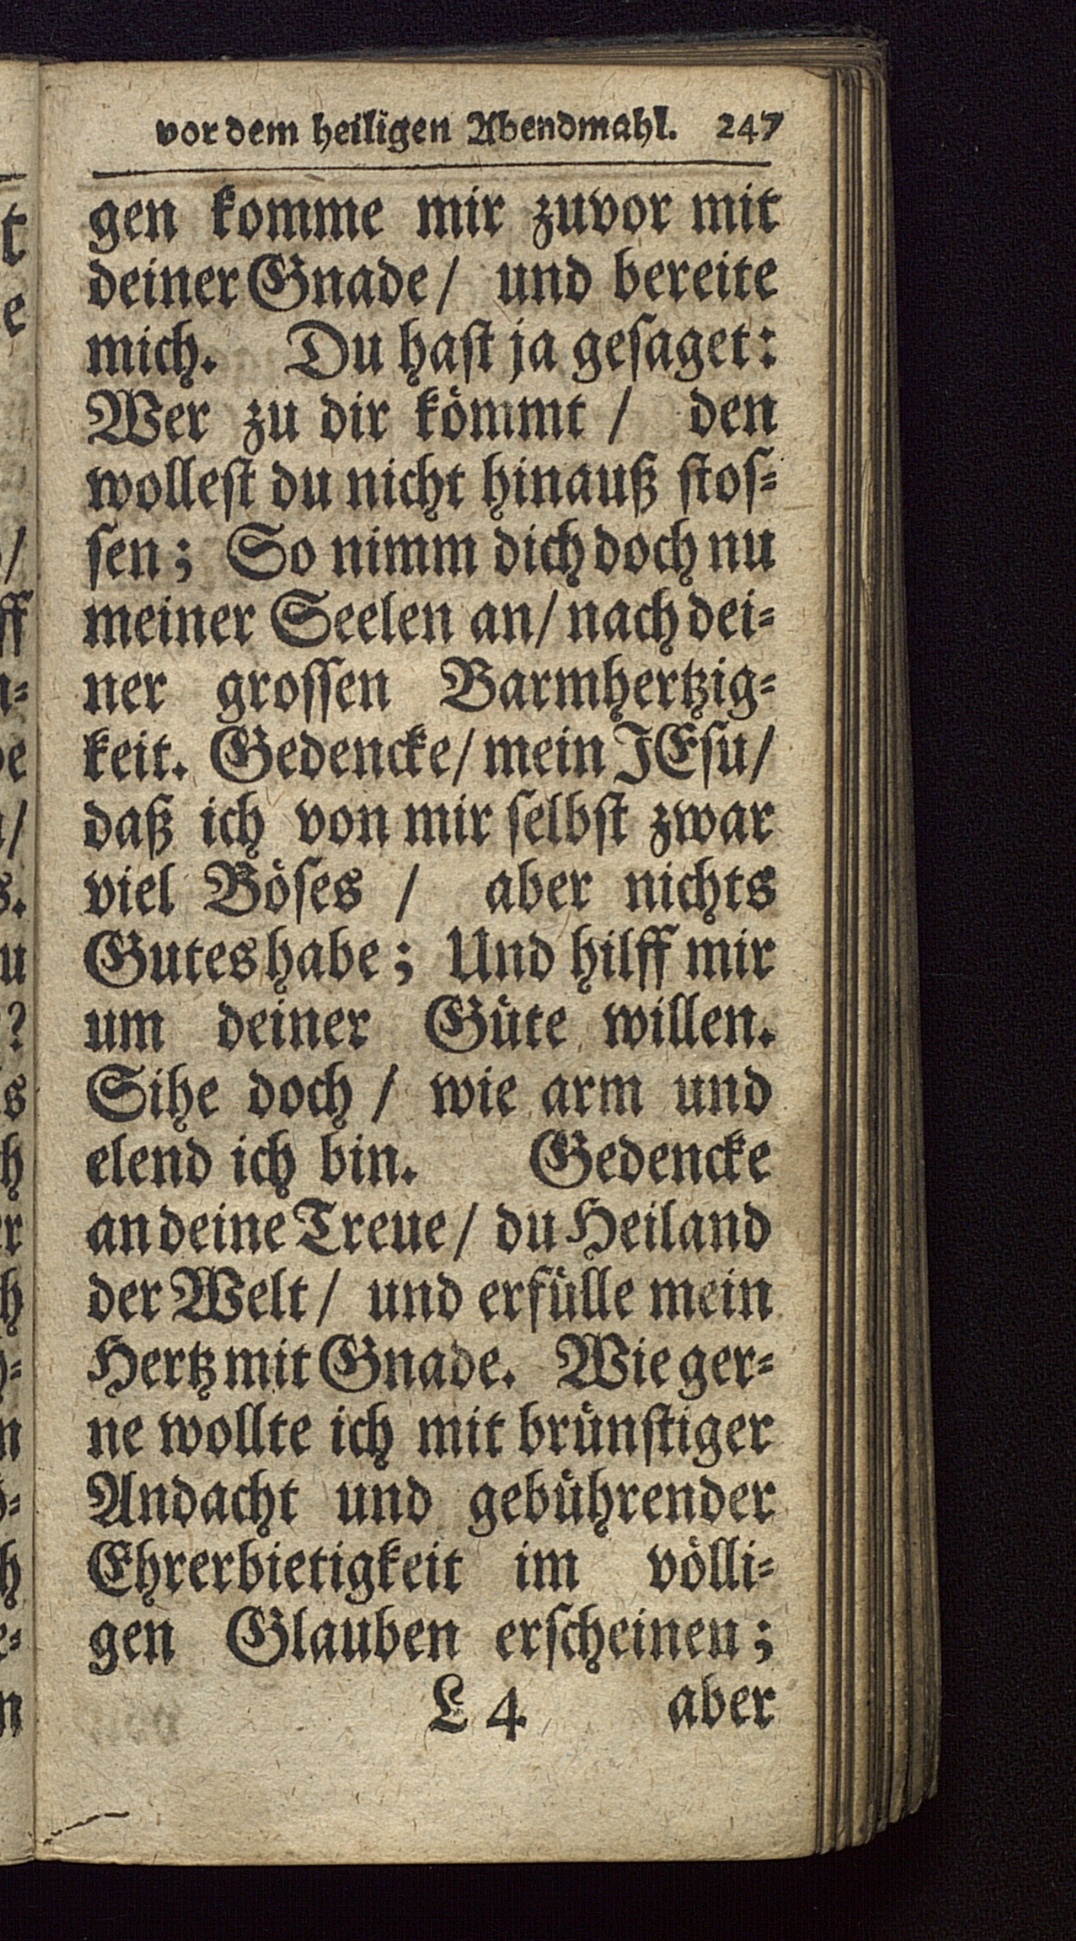 vor dem heiligen Abendmahl. 247
gen komme mir zuvor mit
deiner Gnade / und bereite
mich. Du hast ja gesaget:
Wer zu dir kömmt / den
wollest du nicht hinauß stos-
sen; So nimm dich doch nu
meiner Seelen an / nach dei-
ner grossen Barmhertzig-
keit. Gedencke / mein JEsu /
daß ich von mir selbst zwar
viel Böses / aber nichts
Gutes habe; Und hilff mir
um deiner Güte willen.
Sihe doch / wie arm und
elend ich bin. Gedencke
an deine Treue / du Heiland
der Welt / und erfülle mein
Hertz mit Gnade. Wie ger-
ne wollte ich mit brünstiger
Andacht und gebührender
Ehrerbietigkeit im völli-
gen Glauben erscheinen;
L 4 aber